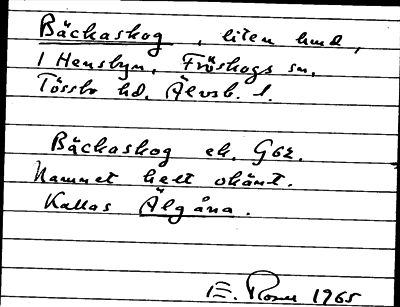 Bäckaskog, liten hmd,
i Hensbyn, Fröskogs sn,
Tössbo hd. Älvsb. l.
Bäckaskog ek. G62.
Namnet helt okänt.
Kallas Älgåna.
E. Rosell 1965